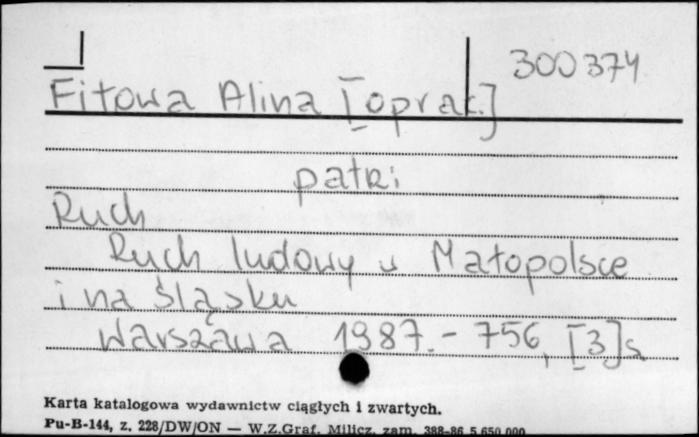 300374
Fitowa Alina [oprac.]
patrz:
Ruch
Ruch ludowy w Małopolsce
i na Śląsku
Warszawa 1987. - 756, [3] s.
Karta katalogowa wydawnictw ciągłych i zwartych.
Pu-B-144, z. 228/DW/ON — W.Z.Graf. Milicz, zam. 388-86 5.650.000